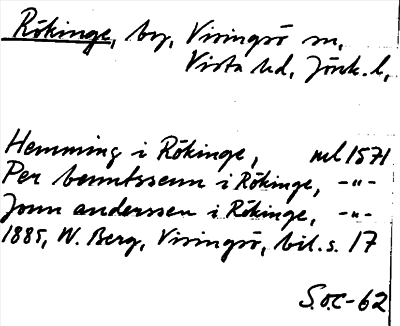 Rökinge, by, Visingsö sn,
Vista hd, Jönk. l,
Hemming i Rökinge, ml 1571
Per benntssenn i Rökinge, -"-
Jonn anderssen i Rökinge, -"-
1885, W. Berg, Visingsö, bil. s. 17
S.O.C-62